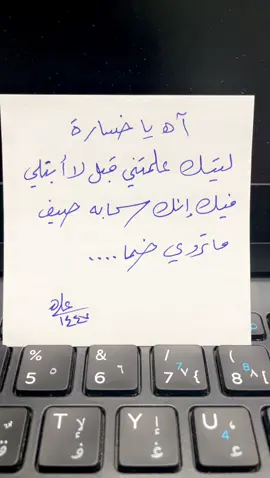 آه يا خسارة
ليتك علمتني قبل لا أبتلي
فيك إنك سحابه صيف
ما تروي ضما ....
% 5 ٥
& 6 ٦
7 ٧ { 7
8 ٨ } 8
T لإ ف
Y إ غ
U 4 ع